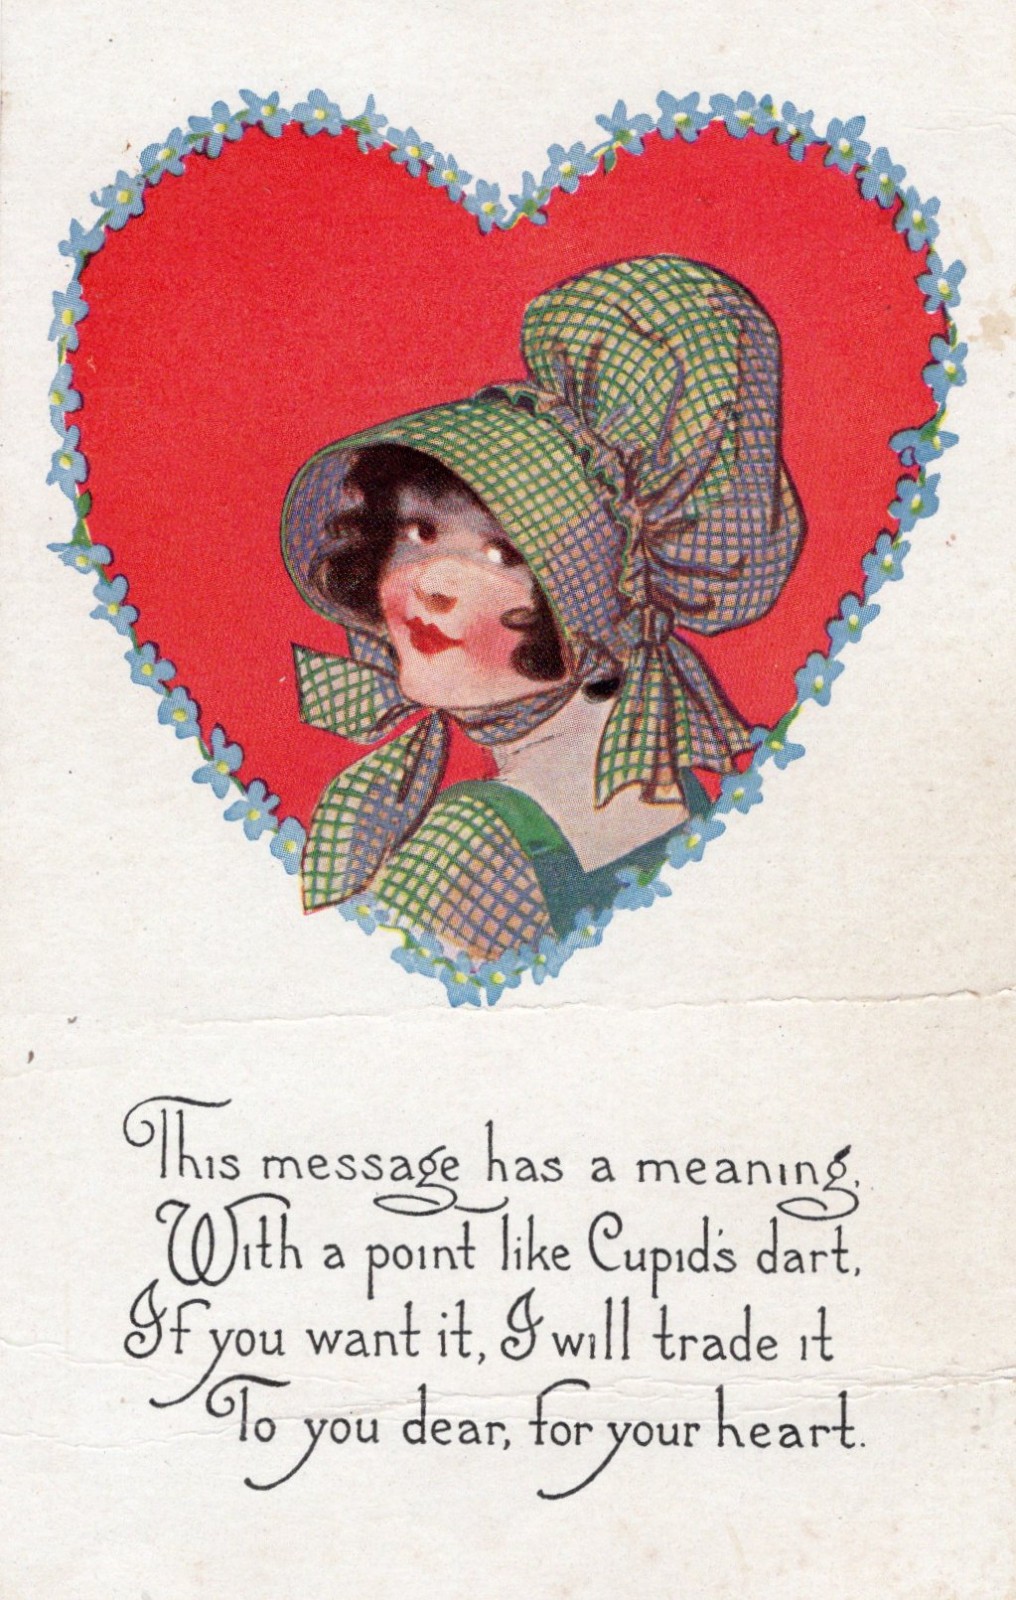 This message has a meaning,
With a point like Cupid's dart,
If you want it, I will trade it
To you dear, for your heart.